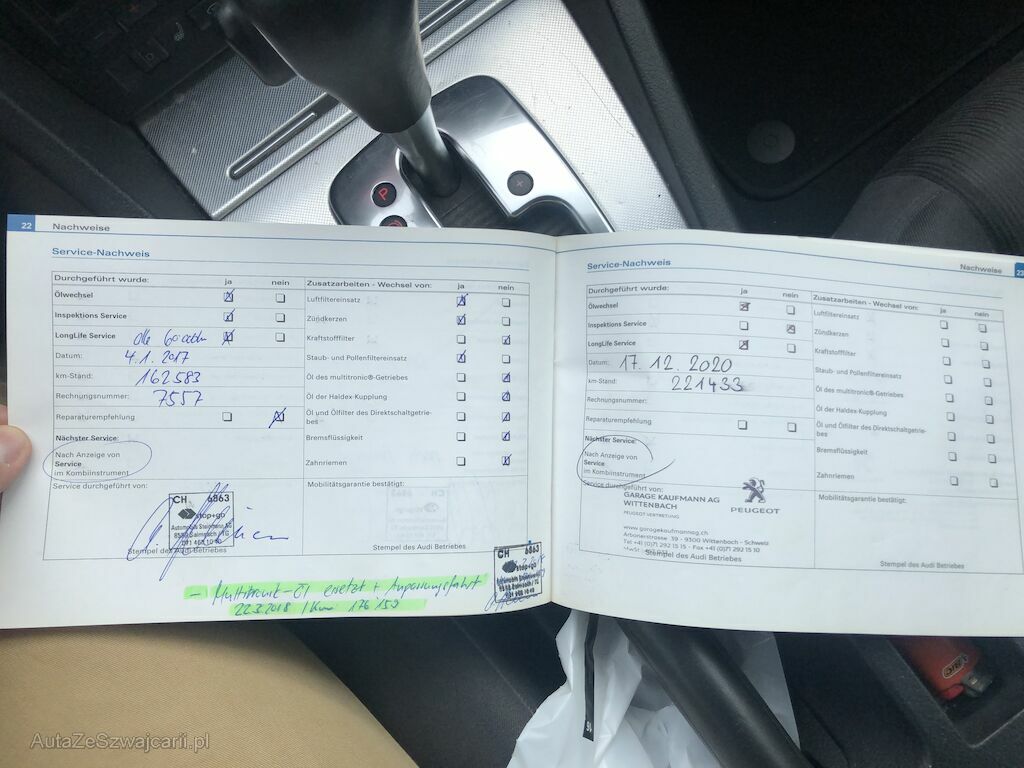 P
+
22 Nachweise
Service-Nachweis
Durchgeführt wurde: ja nein
Ölwechsel
Inspektions Service
LongLife Service alle 60000km
Datum: 4.1.2017
km-Stand: 162583
Rechnungsnummer: 7557
Reparaturempfehlung
Nächster Service:
Nach Anzeige von
Service
im Kombiinstrument
Service durchgeführt von:
CH 6863
stop+go
Automobile Steinmann AG
Stempel des Audi Betriebes
Zusatzarbeiten - Wechsel von: ja nein
Luftfiltereinsatz
Zündkerzen
Kraftstofffilter
Staub- und Pollenfiltereinsatz
Öl des multitronic®-Getriebes
Öl der Haldex-Kupplung
Öl und Ölfilter des Direktschaltgetrie-
bes
Bremsflüssigkeit
Zahnriemen
Mobilitätsgarantie bestätigt:
Stempel des Audi Betriebes
- Multitronik-Öl ersetzt + Anpassungsfahrt
22.3.2018 / Km 176'159
CH 6863
Nachweise 23
Service-Nachweis
Durchgeführt wurde: ja nein
Ölwechsel
Inspektions Service
LongLife Service
Datum: 17.12.2020
km-Stand: 221433
Rechnungsnummer:
Reparaturempfehlung
Nächster Service:
Nach Anzeige von
Service
im Kombiinstrument
Service durchgeführt von:
GARAGE KAUFMANN AG
WITTENBACH
PEUGEOT VERTRETUNG
PEUGEOT
www.garagekaufmannag.ch
Arbonerstrasse 39 - 9300 Wittenbach - Schweiz
Tel +41 (0)71 292 15 15 - Fax +41 (0)71 292 15 10
Stempel des Audi Betriebes
Zusatzarbeiten - Wechsel von: ja nein
Luftfiltereinsatz
Zündkerzen
Kraftstofffilter
Staub- und Pollenfiltereinsatz
Öl des multitronic®-Getriebes
Öl der Haldex-Kupplung
Öl und Ölfilter des Direktschaltgetrie-
bes
Bremsflüssigkeit
Zahnriemen
Mobilitätsgarantie bestätigt:
Stempel des Audi Betriebes
BIC
AutaZeSzwajcarii.pl